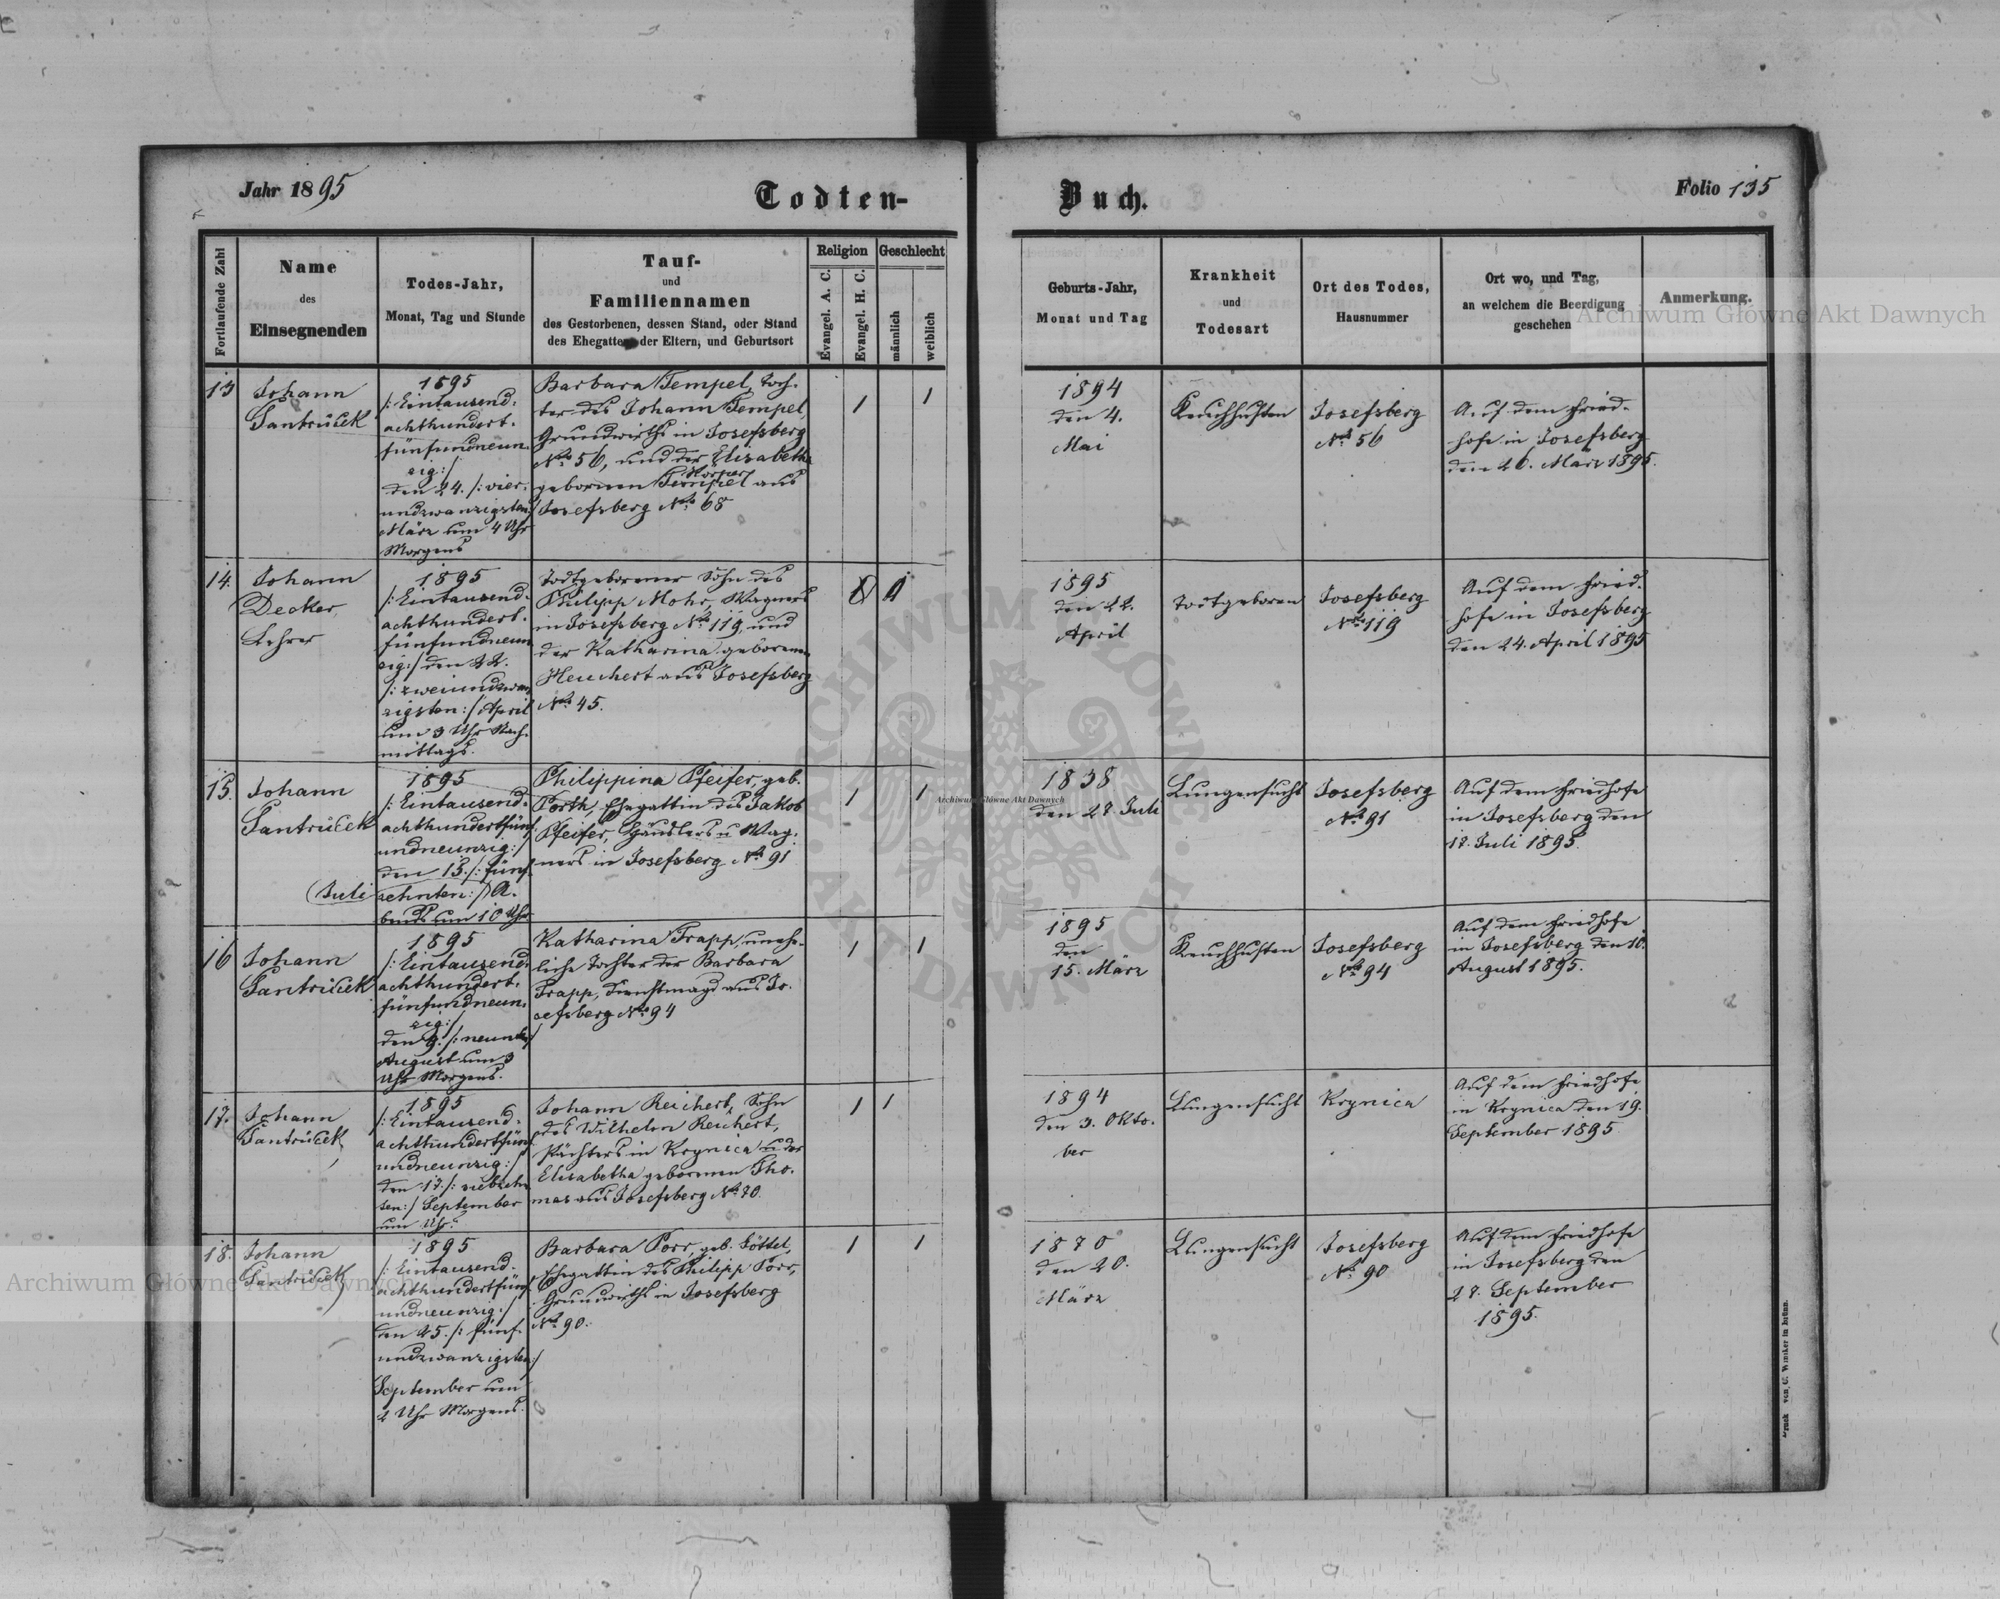 Jahr 1895
Todten-
Buch.
Folio 135
Fortlaufende Zahl
Name
des
Einsegnenden
Todes-Jahr,
Monat, Tag und Stunde
Tauf-
und
Familiennamen
des Gestorbenen, dessen Stand, oder Stand
des Ehegatten oder Eltern, und Geburtsort
Religion
Evangel. A. C.
Evangel. H. C.
Geschlecht
männlich
weiblich
Geburts-Jahr,
Monat und Tag
Krankheit
und
Todesart
Ort des Todes,
Hausnummer
Ort wo, und Tag,
an welchem die Beerdigung
geschehen
Anmerkung.
13
Johann
Santrůček
1895
/: Eintausend-
achthundert-
fünfundneun-
zig :/
den 24. /: vier-
undzwanzigsten :/
März um 4 Uhr
Morgens
Barbara Tempel, Toch-
ter des Johann Tempel,
Grundwirths in Josefsberg
No 56, und der Elisabetha
gebornen Tempel aus
Josefsberg No 68
1
1
1894
den 4.
Mai
Keuchhusten
Josefsberg
No 56
Auf dem Fried-
hofe in Josefsberg
den 26. März 1895.
14.
Johann
Decker,
Lehrer
1895
/: Eintausend-
achthundert-
fünfundneun-
zig :/ den 22.
/: zweiundzwan-
zigsten :/ April
um 3 Uhr Nach-
mittags.
Todtgeborener Sohn des
Philipp Mohr, Wagners
in Josefsberg No 119, und
der Katharina geborenen
Heuchert aus Josefsberg
No 45.
1895
den 22.
April
Todtgeboren
Josefsberg
No 119
Auf dem Fried-
hofe in Josefsberg
den 24. April 1895
15.
Johann
Santrůček
1895
/: Eintausend-
achthundertfünf-
undneunzig :/
den 15. /: fünf-
(Juli zehnten :/ A-
bends um 10 Uhr
Philippina Pfeifer, geb.
Porth, Ehegattin des Jakob
Pfeifer, Häuslers u Wag-
ners in Josefsberg No 91
1
1
1838
den 27. Juli
Lungensucht
Josefsberg
No 91
Auf dem Friedhofe
in Josefsberg den
17. Juli 1895.
16
Johann
Santrůček
1895
/: Eintausend-
achthundert-
fünfundneun-
zig :/
den 9. /: neunten :/
August um 3
Uhr Morgens.
Katharina Trapp, unehe-
liche Tochter der Barbara
Trapp, Dienstmagd aus Jo-
sefsberg No 94
1
1
1895
den
15. März
Keuchhusten
Josefsberg
No 94
Auf dem Friedhofe
in Josefsberg den 10.
August 1895.
17.
Johann
Santrůček
1895
/: Eintausend-
achthundertfünf-
undneunzig :/
den 17. /: siebzehn-
ten :/ September
um Uhr.
Johann Reichert, Sohn
des Wilhelm Reichert,
Pächters in Krynica u der
Elisabetha gebornen Tho-
mas aus Josefsberg No 70.
1
1
1894
den 3. Okto-
ber
Lungensucht
Krynica
Auf dem Friedhofe
in Krynica den 19.
September 1895
18.
Johann
Santrůček
1895
/: Eintausend-
achthundertfünf-
undneunzig :/
den 25. /: fünf-
undzwanzigsten :/
September um
2 Uhr Morgens.
Barbara Porr, geb. Göttel,
Ehegattin des Philipp Porr,
Grundwirths in Josefsberg
No 90.
1
1
1870
den 20.
März
Lungensucht
Josefsberg
No 90
Auf dem Friedhofe
in Josefsberg den
27. September
1895.
Druck von C. Winiker in Brünn.
Archiwum Główne Akt Dawnych
Archiwum Główne Akt Dawnych
Archiwum Główne Akt Dawnych
ARCHIWUM GŁÓWNE AKT DAWNYCH